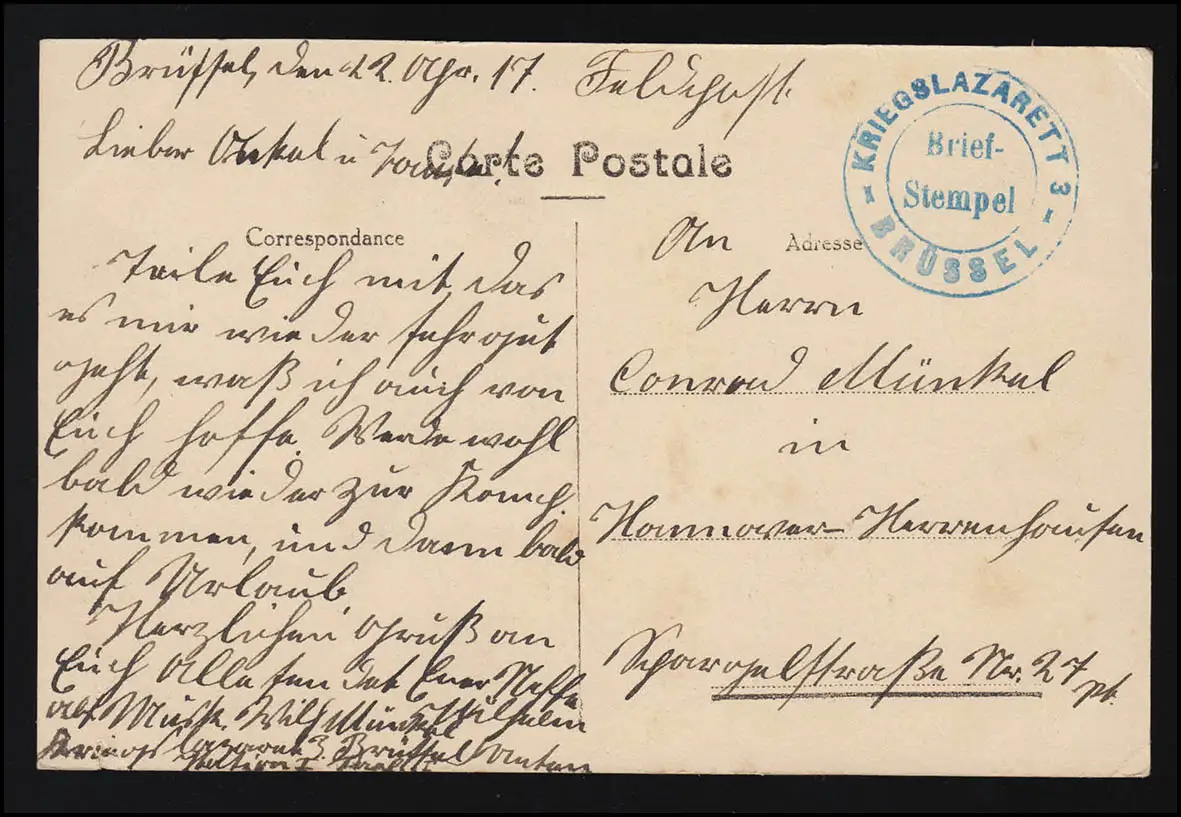 Brüssel, den 22. Apr. 17. Feldpost.
Lieber Onkel u Tante!
Carte Postale
Correspondance
Teile Euch mit, das
es mir wieder sehr gut
geht, waß ich auch von
Euch hoffe. Werde wohl
bald wieder zur Komp.
kommen, und dann bald
auf Urlaub
Herzlichen Gruß an
Euch Alle sendet Euer Neffe
Wilhelm
Abs. Musk. Wilh Münkel
Kriegslazarett 3. Brüssel
Station I
KRIEGSLAZARETT 3
Brief-
Stempel
BRÜSSEL
Adresse
An
Herrn
Conrad Münkel
in
Hannover-Herrenhausen
Spargelstraße Nr. 27 pt.